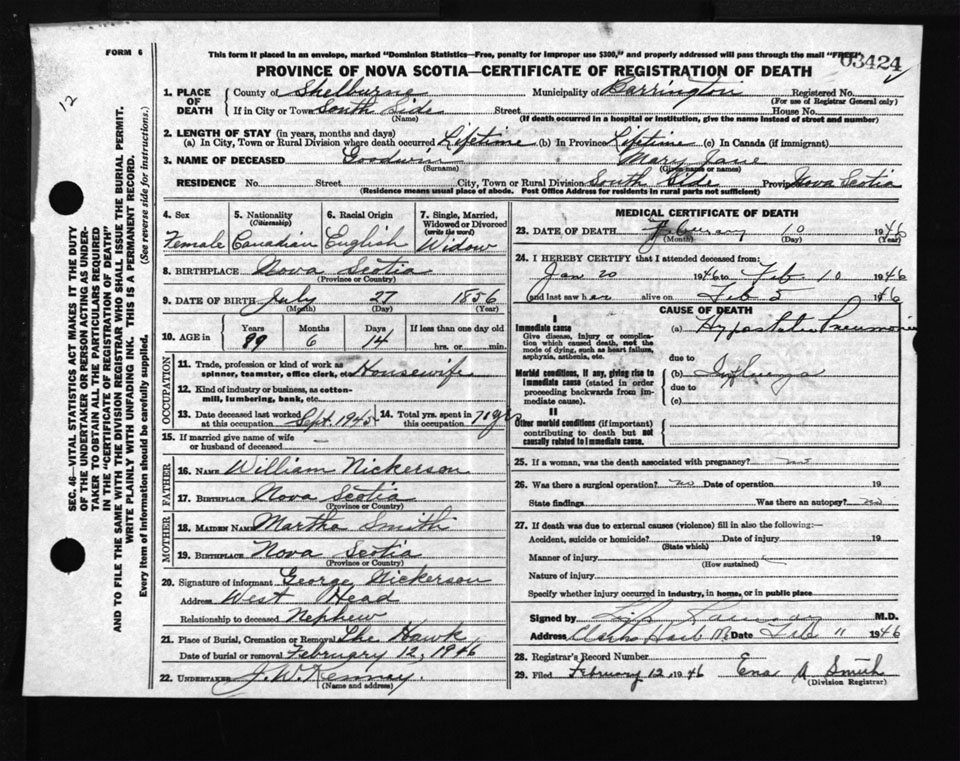 FORM 6
This form if placed in an envelope, marked "Dominion Statistics—Free, penalty for improper use $300," and properly addressed will pass through the mail "FREE"
03424
PROVINCE OF NOVA SCOTIA—CERTIFICATE OF REGISTRATION OF DEATH
12
SEC. 46—VITAL STATISTICS ACT MAKES IT THE DUTY
OF THE UNDERTAKER OR PERSON ACTING AS UNDER-
TAKER TO OBTAIN ALL THE PARTICULARS REQUIRED
IN THE "CERTIFICATE OF REGISTRATION OF DEATH"
AND TO FILE THE SAME WITH THE DIVISION REGISTRAR WHO SHALL ISSUE THE BURIAL PERMIT.
WRITE PLAINLY WITH UNFADING INK. THIS IS A PERMANENT RECORD.
Every item of Information should be carefully supplied. (See reverse side for instructions.)
1. PLACE OF DEATH
County of Shelburne Municipality of Barrington Registered No.
(For use of Registrar General only)
If in City or Town South Side Street House No.
(Name) (If death occurred in a hospital or institution, give the name instead of street and number)
2. LENGTH OF STAY (in years, months and days)
(a) In City, Town or Rural Division where death occurred Lifetime (b) In Province Lifetime (c) In Canada (if immigrant)
3. NAME OF DECEASED Goodwin Mary Jane
(Surname) (Given name or names)
RESIDENCE No. Street City, Town or Rural Division South Side Province Nova Scotia
(Residence means usual place of abode. Post Office Address for residents in rural parts not sufficient)
4. Sex 5. Nationality (Citizenship) 6. Racial Origin 7. Single, Married, Widowed or Divorced (write the word)
Female Canadian English Widow
8. BIRTHPLACE Nova Scotia
(Province or Country)
9. DATE OF BIRTH July 27 1856
(Month) (Day) (Year)
10. AGE in Years Months Days If less than one day old
89 6 14 hrs. or min.
OCCUPATION
11. Trade, profession or kind of work as spinner, teamster, office clerk, etc. Housewife
12. Kind of industry or business, as cotton-mill, lumbering, bank, etc.
13. Date deceased last worked at this occupation Sept. 1945 14. Total yrs. spent in this occupation 70 yrs
15. If married give name of wife or husband of deceased —
FATHER
16. NAME William Nickerson
17. BIRTHPLACE Nova Scotia
(Province or Country)
MOTHER
18. MAIDEN NAME Martha Smith
19. BIRTHPLACE Nova Scotia
(Province or Country)
20. Signature of informant George Nickerson
Address West Head
Relationship to deceased Nephew
21. Place of Burial, Cremation or Removal The Hawk
Date of burial or removal February 12, 1946
22. UNDERTAKER J. W. Kenney.
(Name and address)
MEDICAL CERTIFICATE OF DEATH
23. DATE OF DEATH February 10 1946
(Month) (Day) (Year)
24. I HEREBY CERTIFY that I attended deceased from:
Jan 20 1946 to Feb 10 1946
and last saw her alive on Feb 5 1946
CAUSE OF DEATH
I
Immediate cause
Give disease, injury or complication which caused death, not the mode of dying, such as heart failure, asphyxia, asthenia, etc.
(a) Hypostatic Pneumonia
due to
Morbid conditions, if any, giving rise to immediate cause (stated in order proceeding backwards from immediate cause).
(b) Influenza
due to
(c)
II
Other morbid conditions (if important) contributing to death but not causally related to immediate cause.
25. If a woman, was the death associated with pregnancy? no
26. Was there a surgical operation? no Date of operation 19
State findings Was there an autopsy? no
27. If death was due to external causes (violence) fill in also the following:—
Accident, suicide or homicide? Date of injury 19
(State which)
Manner of injury
(How sustained)
Nature of injury
Specify whether injury occurred in industry, in home, or in public place
Signed by M.D.
Address Clarks Harb NS Date Feb 11 1946
28. Registrar's Record Number
29. Filed February 12, 1946 Ena A. Smith
(Division Registrar)